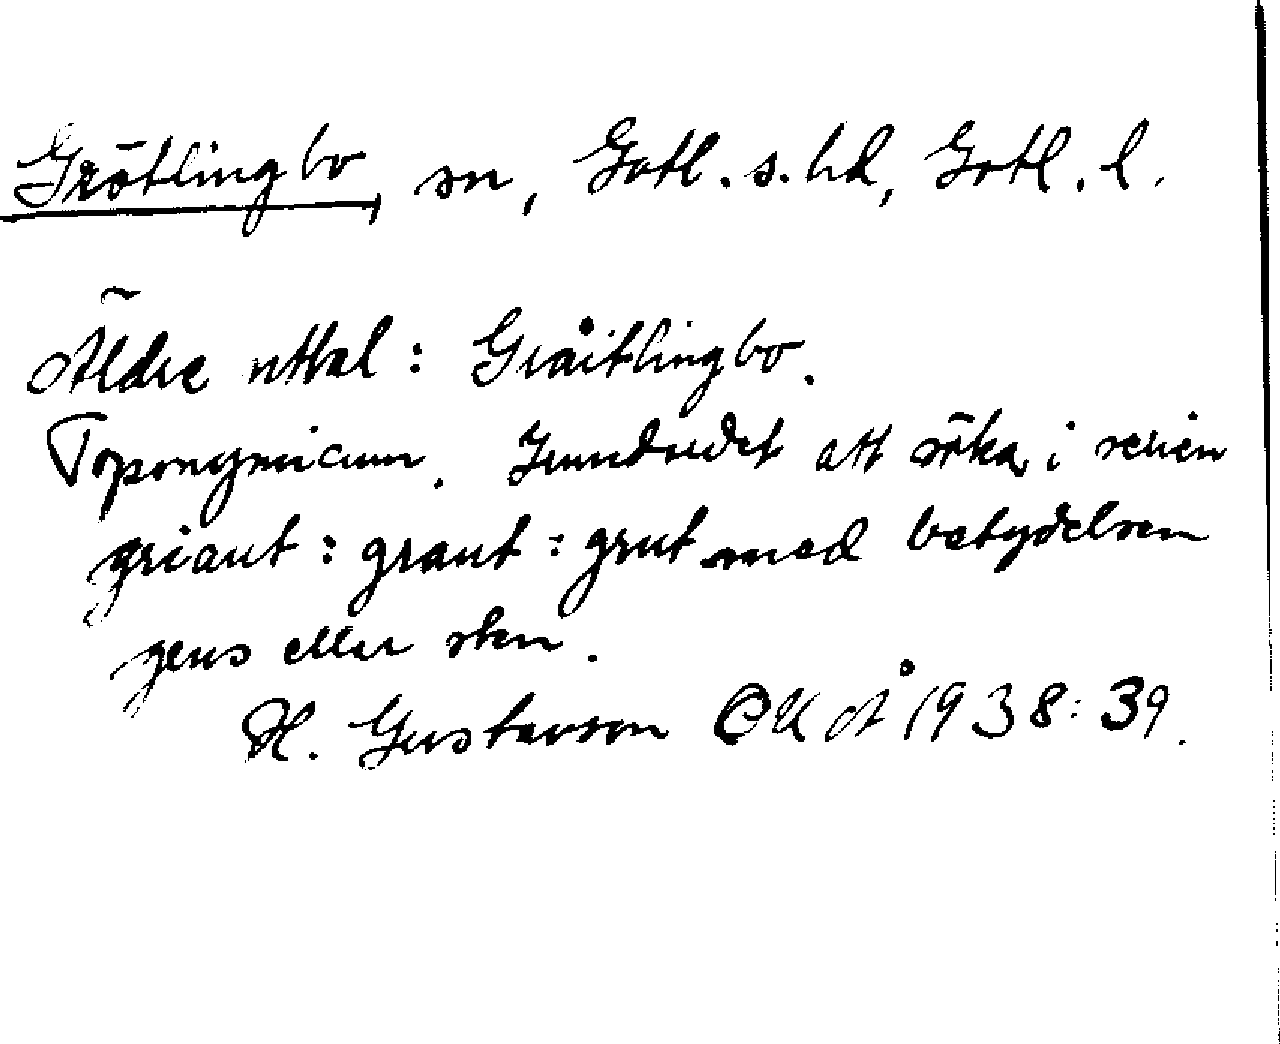 Grötlingbo, sn, Gotl. s. hd, Gotl. l.
Äldre uttal: Gråitlingbo.
Toponymicum. Grundordet att söka i serien
griaut : graut : grut med betydelsen
grus eller sten.
H. Gustavson OKÅ 1938:39.